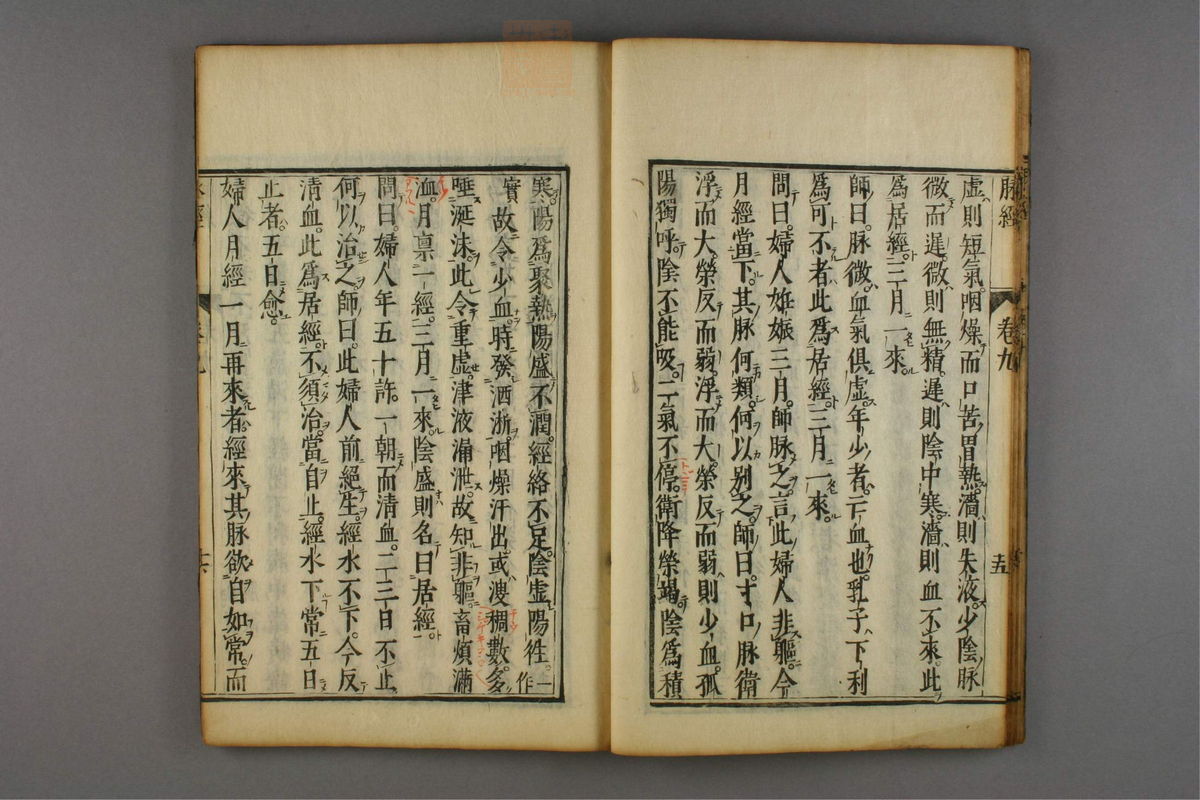 脉經　卷九　十五
虛則短氣咽燥而口苦胃熱濇則失液少陰脉
微而遲微則無精遲則陰中寒濇則血不來此
爲居經三月一來
師曰脉微血氣俱虛年少者亡血也乳子下利
爲可不者此爲居經三月一來
問曰婦人姙娠三月師脉之言此婦人非軀今
月經當下其脉何類何以別之師曰寸口脉衛
浮而大榮反而弱浮而大榮反而弱則少血孤
陽獨呼陰不能吸二氣不停衛降榮竭陰爲積
寒陽爲聚熱陽盛不潤經絡不足陰虛陽徃一作
實故令少血時發洒淅咽燥汗出或溲稠數多
唾涎沫此令重虛津液漏泄故知非軀畜煩滿
洫月禀一經三月一來陰盛則名曰居經
問曰婦人年五十許一朝而清血二三日不止
何以治之師曰此婦人前絕生經水不下今反
清血此爲居經不須治當自止經水下常五日
止者五日愈
婦人月經一月再來者經來其脉欲自如常而